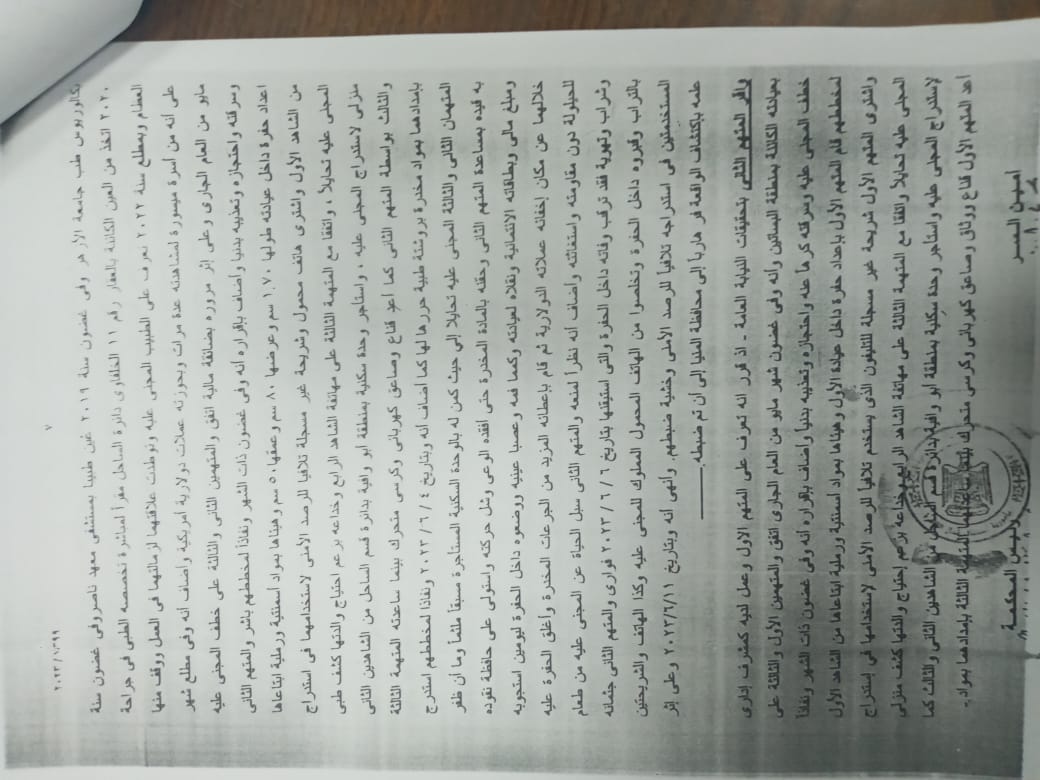 ٧
بكالوريوس طب جامعة الأزهر وفى غضون سنة ٢٠١٩ عين طبيبا بمستشفى معهد ناصر وفى غضون سنة
٢٠٢٠ اتخذ من العين الكائنة بالعقار رقم ١١ الخلفاوى دائرة الساحل مقراً لمباشرة تخصصه الطبى فى جراحة
العظام وبمطلع سنة ٢٠٢٢ تعرف على الطبيب المجنى عليه وتوطدت علاقتهما لزمالتهما فى العمل ووقف منها
على أنه من أسرة ميسورة لمشاهدته عدة مرات وبحوزته عملات دولارية أمريكية وأضاف أنه وفى مطلع شهر
مايو من العام الجارى وعلى إثر مروره بضائقة مالية اتفق والمتهمين الثانى والثالثة على خطف المجنى عليه
وسرقته واحتجازه وتعذيبه بدنيا وأضاف بإقراره أنه وفى غضون ذات الشهر ونفاذاً لمخططهم باشر والمتهم الثانى
اعداد حفرة داخل عيادته طولها ١.٧٠ سم وعرضها ٨٠ سم وعمقها ٥٠ سم وهيئاها بمواد اسمنتية ورملية ابتاعاها
من الشاهد الأول واشترى هاتف محمول وشريحة غير مسجلة تلافيا للرصد الأمنى لاستخدامهما فى استدراج
المجنى عليه تحايلاً ، واتفقا مع المتهمة الثالثة على مهاتفة الشاهد الرابع وخداعه بزعم احتياج والدتها كشف طبى
منزلى لاستدراج المجنى عليه ، واستأجر وحدة سكنية بمنطقة أبو وافية بدائرة قسم الساحل من الشاهدين الثانى
والثالث بواسطة المتهم الثانى كما أعد قناع وصاعق كهربائى وكرسى متحرك بينما ساعدته المتهمة الثالثة
بإمدادهما بمواد مخدرة بروشتة طبية حررها لها كما أضاف أنه وبتاريخ ٤ / ٦ / ٢٠٢٣ ونفاذا لمخططهم استدرج
المتهمان الثانى والثالثة المجنى عليه تحايلا إلى حيث كمن له بالوحدة السكنية المستأجرة مسبقاً ملثماً وما أن ظفر
به قيده بمساعدة المتهم الثانى وحقنه بالمادة المخدرة حتى افقده الوعى وشل حركته واستولى على حافظة نقوده
ومبلغ مالى وبطاقاته الائتمانية ونقلاه لعيادته وكمما فمه وعصبا عينيه ووضعوه داخل الحفرة ليومين استجوبه
خلالهما عن مكان إخفائه عملاته الدولارية ثم قام بإعطائه المزيد من الجرعات المخدرة وأغلق الحفرة عليه
للحيلولة دون مقاومته واستغاثته وأضاف أنه نظراً لمنعه والمتهم الثانى سبل الحياة عن المجنى عليه من طعام
وشراب وتهوية فقد ترقب وفاته داخل الحفرة والتى استيقنها بتاريخ ٦ / ٦ / ٢٠٢٣ فوارى والمتهم الثانى جثمانه
بالتراب وقبروه داخل الحفرة وتخلصوا من الهاتف المحمول المملوك للمجنى عليه وكذا الهاتف والشريحتين
المستخدمتين فى استدراجه تلافياً للرصد الأمنى وخشية ضبطهم. وأنهى أنه وبتاريخ ٢٠٢٣/٦/١١ وعلى إثر
علمه بإكتشاف الواقعة فر هارباً إلى محافظة المنيا إلى أن تم ضبطه.
وأقر المتهم الثانى بتحقيقات النيابة العامة - اذ قرر انه تعرف على المتهم الاول وعمل لديه كمشرف إدارى
بعيادته الكائنة بمنطقة البساتين وأنه وفى غضون شهر مايو من العام الجارى اتفق والمتهمين الأول والثالثة على
خطف المجنى عليه وسرقته كرها عنه واحتجازه وتعذيبه بدنياً وأضاف بإقراره انه وفى غضون ذات الشهر ونفاذاً
لمخططهم قام المتهم الأول بإعداد حفرة داخل عيادة الأول وهيئاها بمواد أسمنتية ورملية ابتاعاها من الشاهد الأول
واشترى المتهم الأول شريحة غير مسجلة للتليفون الذى يستخدم تلافيا للرصد الأمنى لإستخدامها فى إستدراج
المجنى عليه تحايلاً واتفقا مع المتهمة الثالثة على مهاتفة الشاهد الرابع وخداعه بزعم إحتياج والدتها كشف منزلى
لإستدراج المجنى عليه واستأجر وحدة سكنية بمنطقة أبو وافية بدائرة قسم الساحل من الشاهدين الثانى والثالث كما
أعد المتهم الأول قناع ووثاق وصاعق كهربائى وكرسى متحرك بينما المتهمة الثالثة بإمدادهما بمواد
أمين السر
رئيس المحكمة